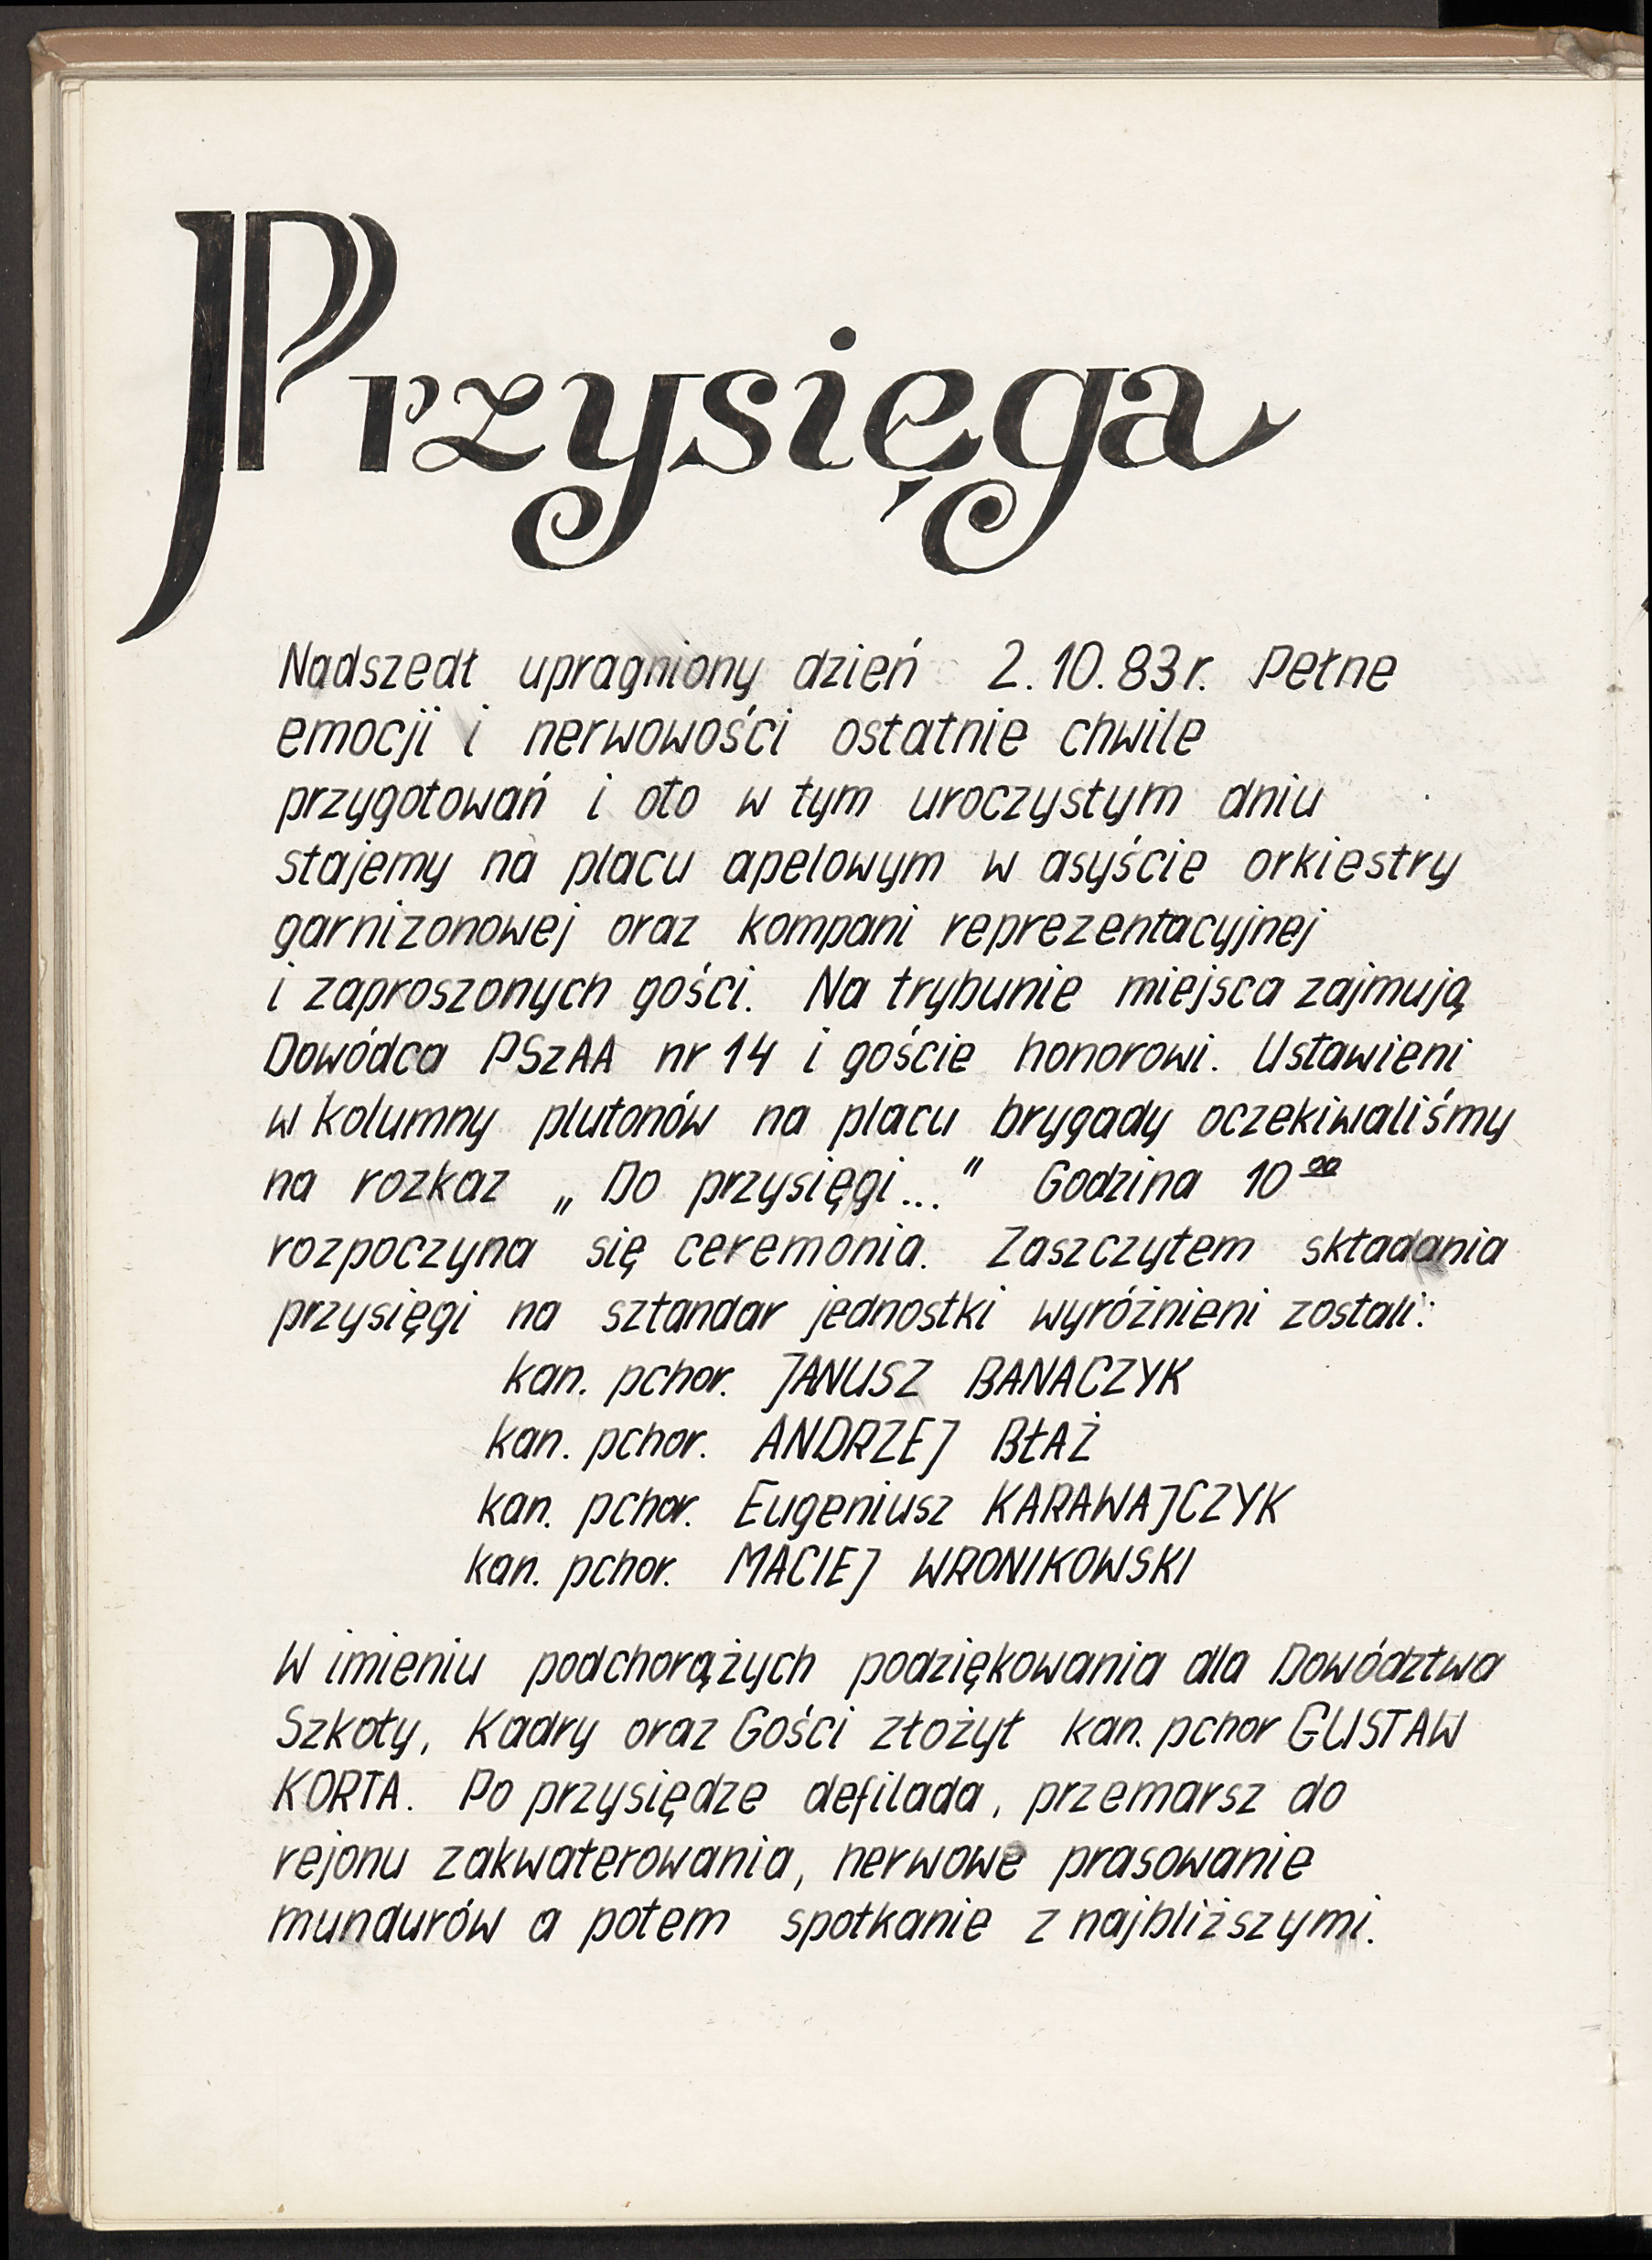 Przysięga
Nadszedł upragniony dzień 2.10.83r. Pełne
emocji i nerwowości ostatnie chwile
przygotowań i oto w tym uroczystym dniu
stajemy na placu apelowym w asyście orkiestry
garnizonowej oraz kompani reprezentacyjnej
i zaproszonych gości. Na trybunie miejsca zajmują
Dowódca PSzAA nr 14 i goście honorowi. Ustawieni
w kolumny plutonów na placu brygady oczekiwaliśmy
na rozkaz „Do przysięgi..." Godzina 10⁰⁰
rozpoczyna się ceremonia. Zaszczytem składania
przysięgi na sztandar jednostki wyróżnieni zostali:
kan. pchor. JANUSZ BANACZYK
kan. pchor. ANDRZEJ BŁAŻ
kan. pchor. Eugeniusz KARAWAJCZYK
kan. pchor. MACIEJ WRONIKOWSKI
W imieniu podchorążych podziękowania dla Dowództwa
Szkoły, Kadry oraz Gości złożył kan. pchor GUSTAW
KORTA. Po przysiędze defilada, przemarsz do
rejonu zakwaterowania, nerwowe prasowanie
mundurów a potem spotkanie z najbliższymi.